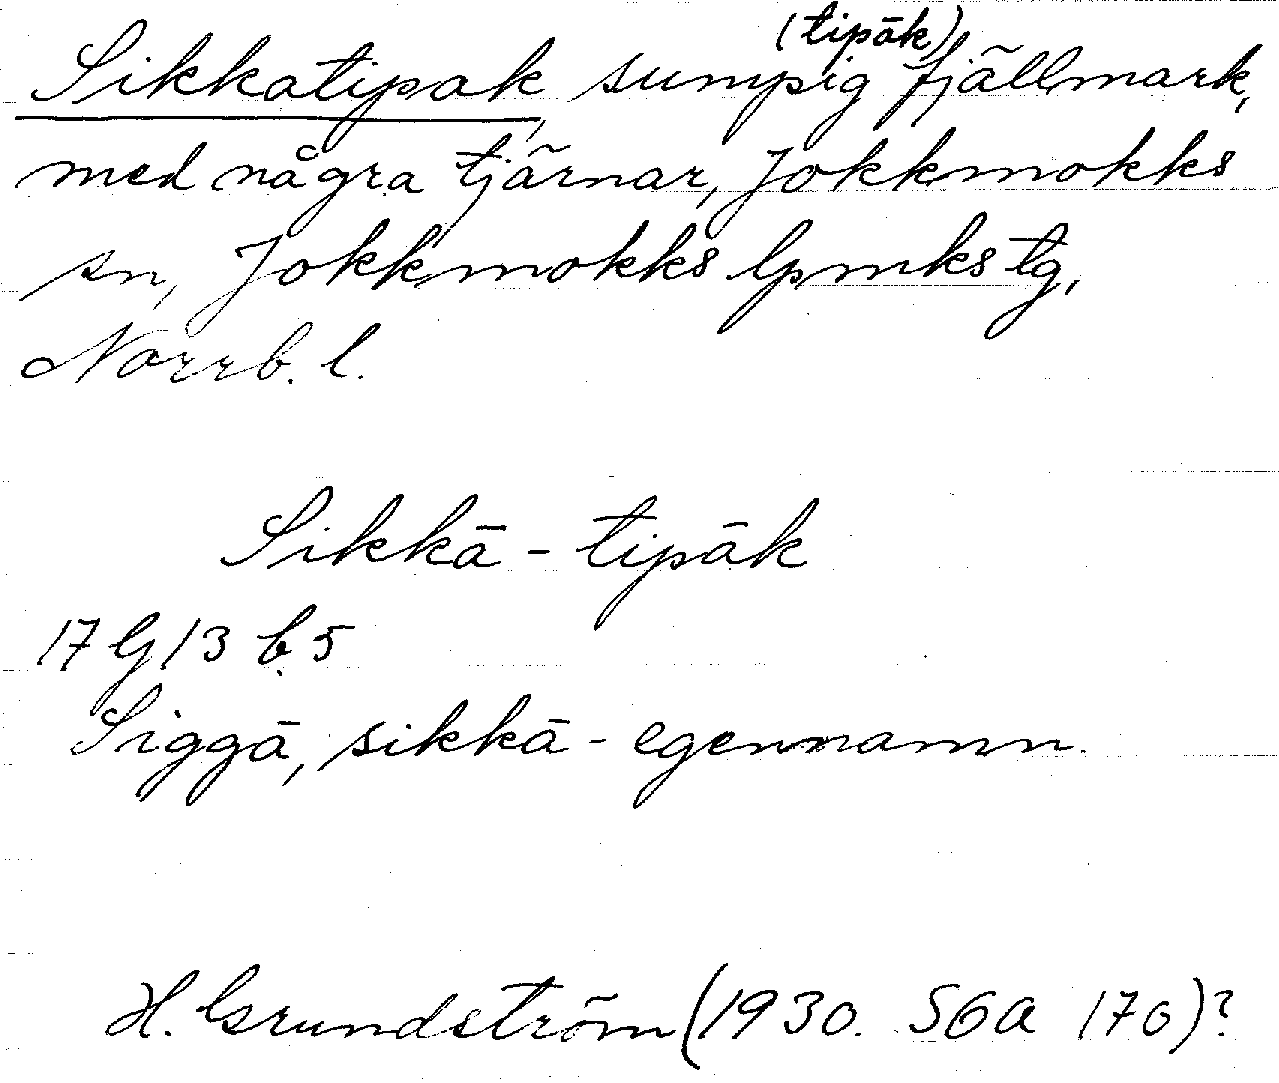 (tipāk)
Sikkatipak, sumpig fjällmark,
med några tjärnar, Jokkmokks
sn, Jokkmokks lpmks tg,
Norrb. l.
Sikkā - tipāk
17 G 13 b. 5
Siggā, sikkā - egennamn.
H. Grundström (1930. SGA 170)?